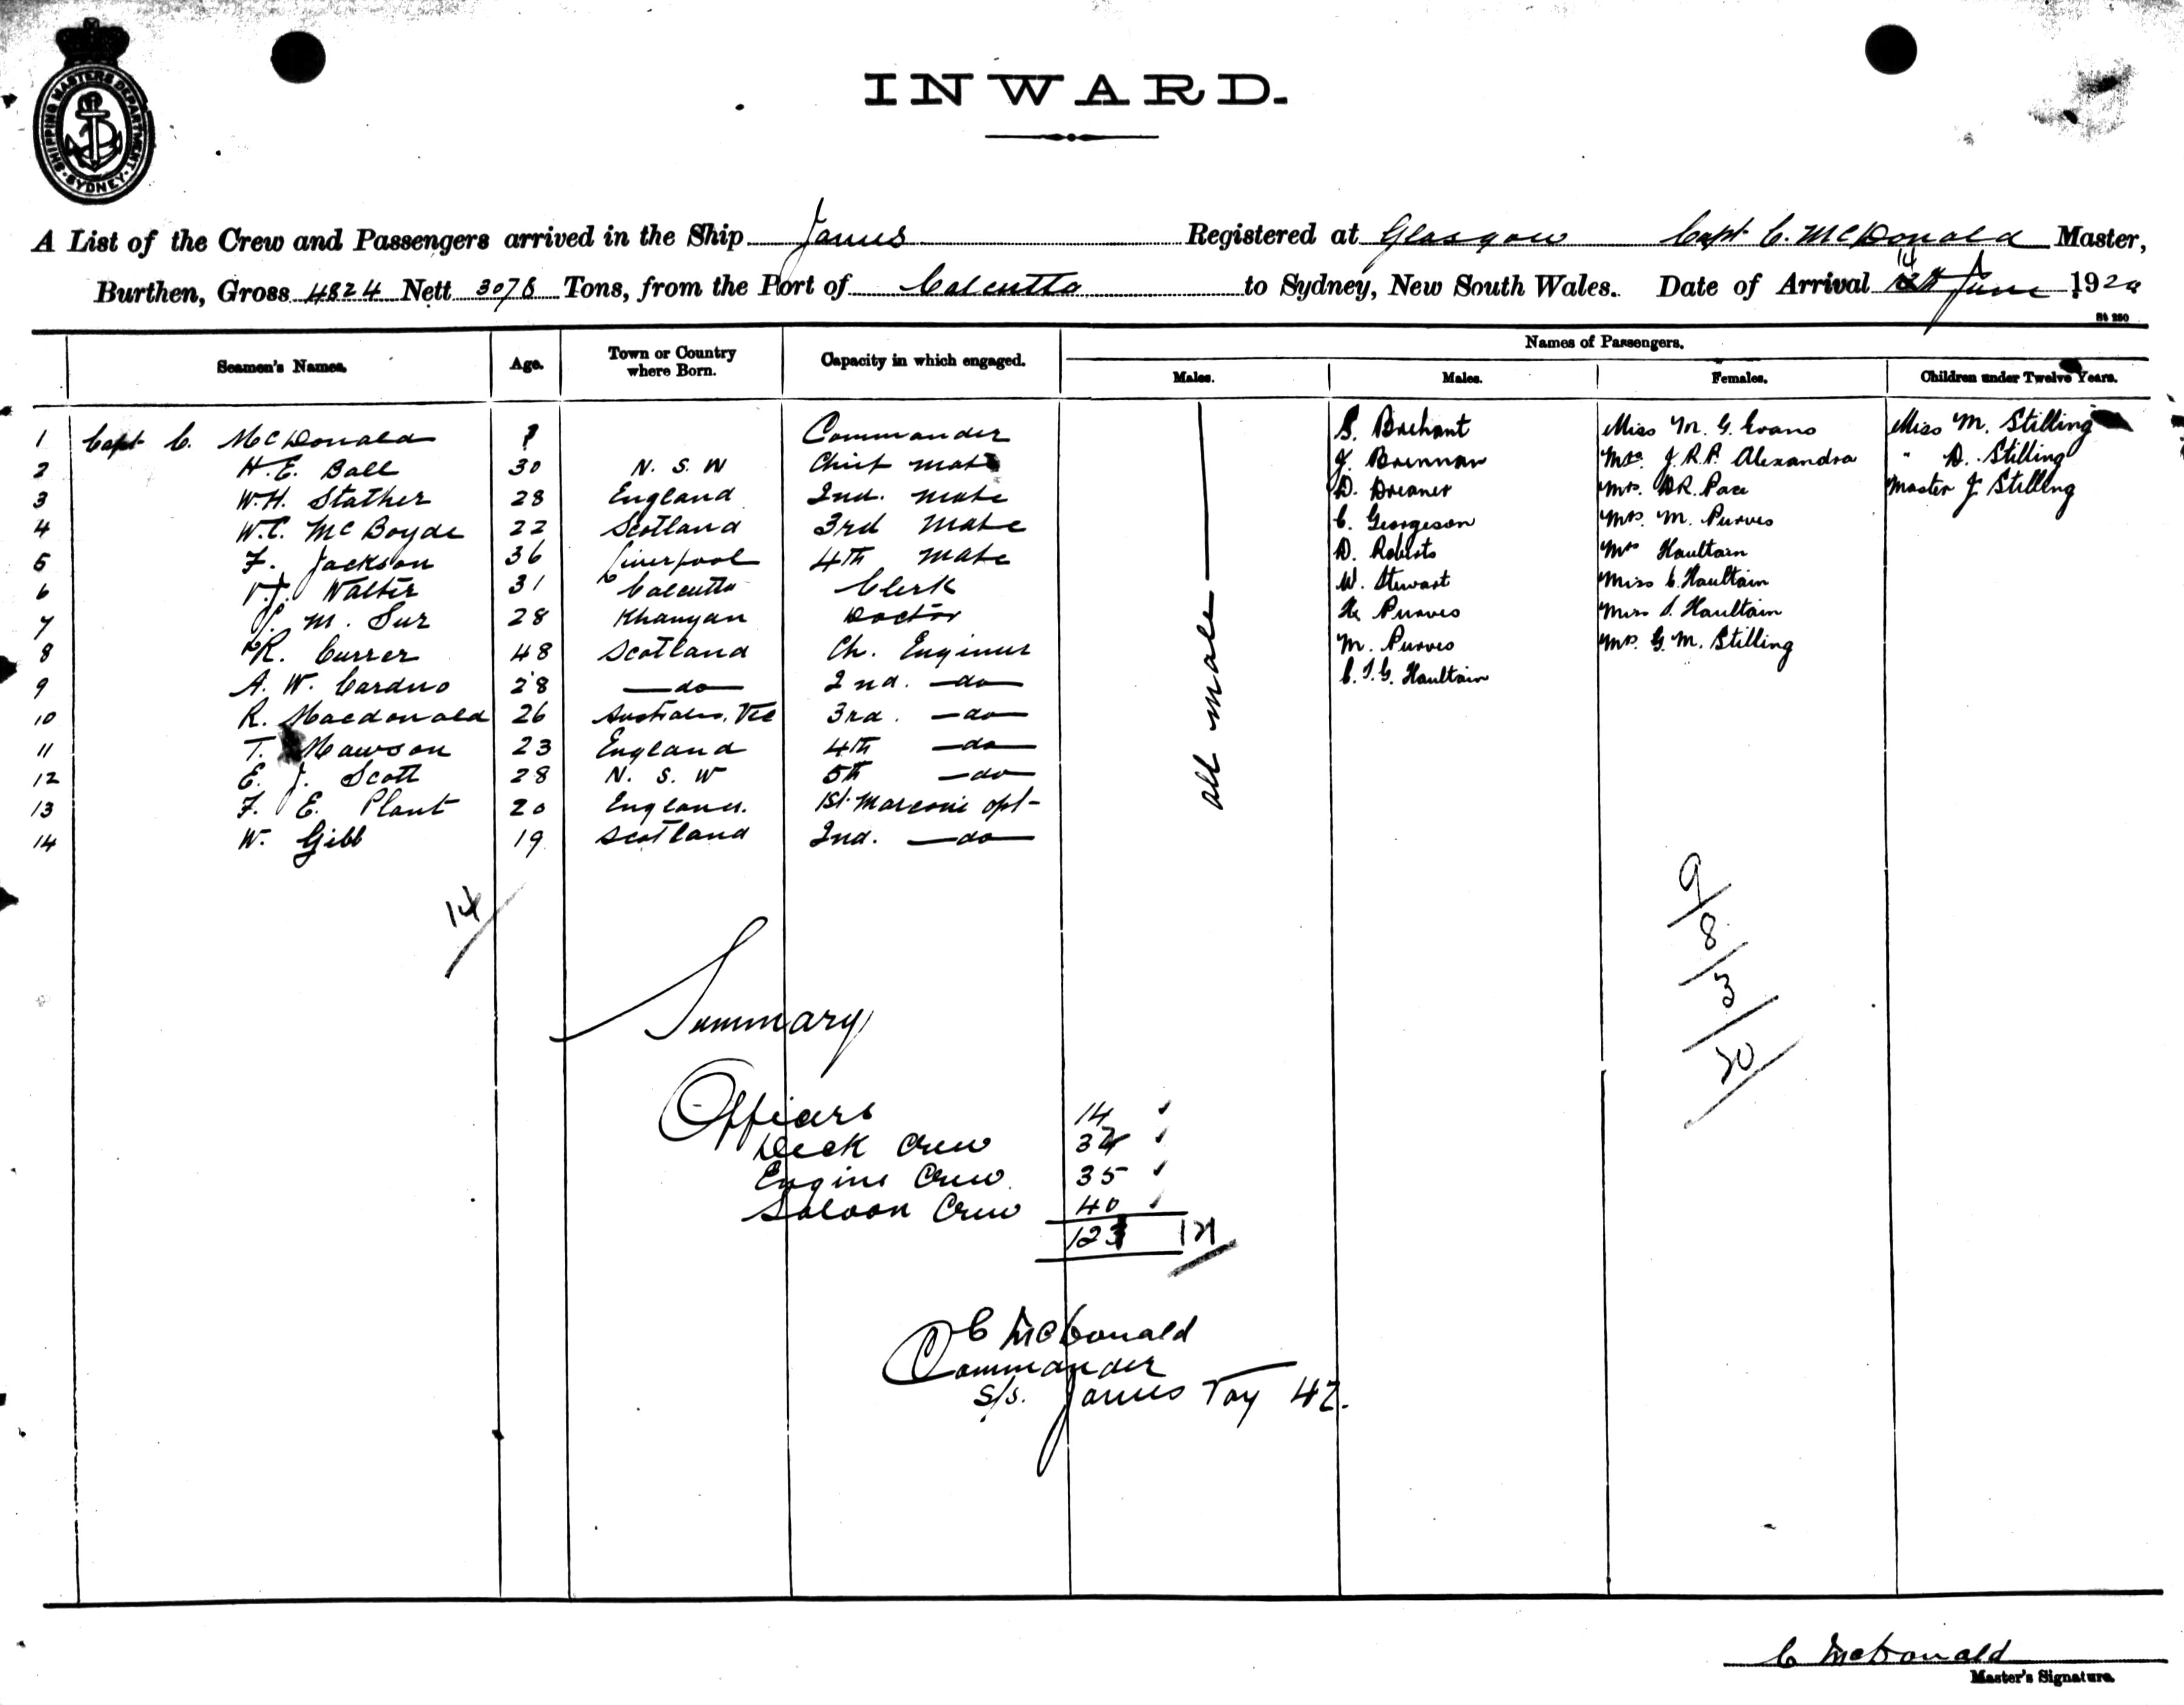 SHIPPING MASTERS DEPARTMENT
SYDNEY
INWARD.
A List of the Crew and Passengers arrived in the Ship Janus Registered at Glasgow Capt C. McDonald Master,
Burthen, Gross 4824 Nett 3078 Tons, from the Port of Calcutta to Sydney, New South Wales. Date of Arrival 14 June 1920
Seamen's Names. Age. Town or Country where Born. Capacity in which engaged. Names of Passengers.
Males. Males. Females. Children under Twelve Years.
1 Capt C. McDonald ? Commander S. Miss M. G. Evans Miss M. Stilling
2 H. E. Ball 30 N. S. W Chief mate J. Brennan Mrs. J. R. P. Alexandra " D. Stilling
3 W. H. Stather 28 England 2nd. mate D. Mrs. Pace Master J Stilling
4 W. C. McBoyde 22 Scotland 3rd mate C. Georgeson Mrs. M. Purves
5 F. Jackson 36 Liverpool 4th mate D. Roberts Mrs Haultain
6 Walter 31 Calcutta Clerk W. Stewart Miss C. Haultain
7 M. Sur 28 Khanyan Doctor Purves Miss Haultain
8 R. Currer 48 Scotland Ch. Engineer M. Purves Mrs. G. M. Stilling
9 A. W. Cardno 28 —do— 2nd. —do— Haultain
10 R. Macdonald 26 Australia, Vic 3rd. —do—
11 T. Mawson 23 England 4th —do—
12 E. J. Scott 28 N. S. W 5th —do—
13 F. E. Plant 20 England. 1st. Marconi opt-
14 W. Gibb 19 Scotland 2nd. —do—
all male
14
9
8
3
20
Summary
Officers 14
Deck Crew
Engine Crew 35
Saloon Crew 40
123 121
C McDonald
Commander
s/s. Janus Voy 42.
C McDonald
Master's Signature.